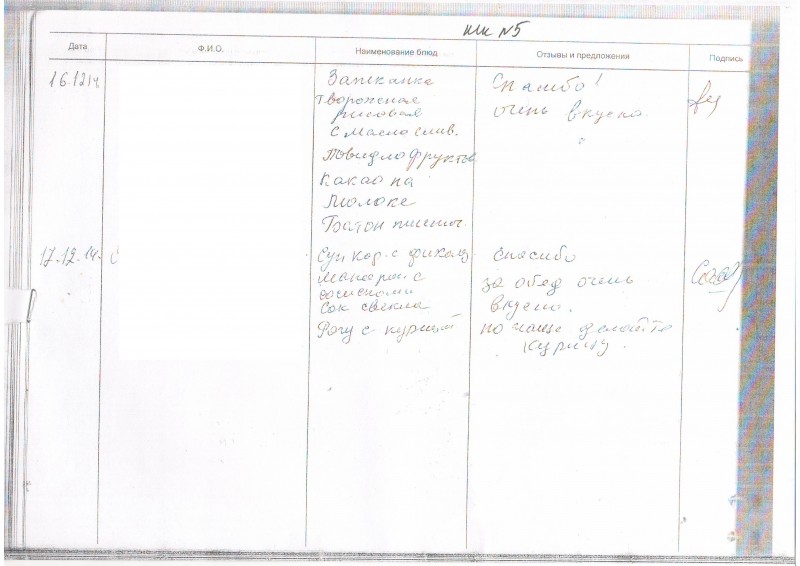 №5
Дата Ф.И.О. Наименование блюд Отзывы и предложения Подпись
16.12.14 Запеканка Спасибо!
творожная очень вкусно.
рисовая
с масло слив.
Повидло фруктов.
Какао на
молоке
Батон пшенич.
17.12.14. Суп кар. с спасибо
макароны с за обед очень
сосисками
Сок свекла вкусно.
Рагу с курицей по чаще делайте
курицу.